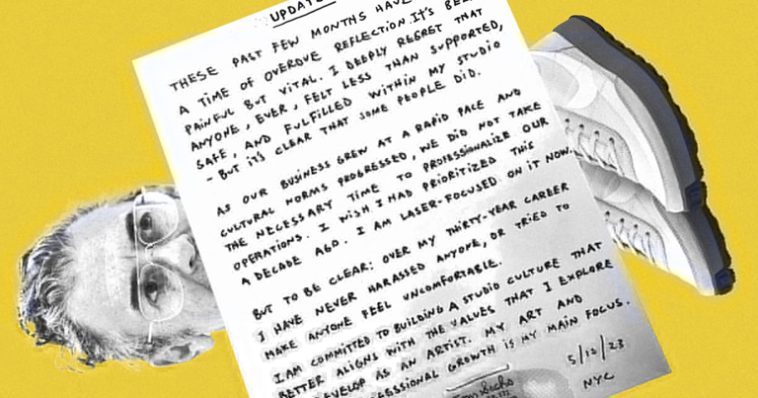 UPDATE
THESE PAST FEW MONTHS HAVE
A TIME OF OVERDUE REFLECTION. IT'S BEEN
PAINFUL BUT VITAL. I DEEPLY REGRET THAT
ANYONE, EVER, FELT LESS THAN SUPPORTED,
SAFE, AND FULFILLED WITHIN MY STUDIO
- BUT IT'S CLEAR THAT SOME PEOPLE DID.
AS OUR BUSINESS GREW AT A RAPID PACE AND
CULTURAL NORMS PROGRESSED, WE DID NOT TAKE
THE NECESSARY TIME TO PROFESSIONALIZE OUR
OPERATIONS. I WISH I HAD PRIORITIZED THIS
A DECADE AGO. I AM LASER-FOCUSED ON IT NOW.
BUT TO BE CLEAR: OVER MY THIRTY-YEAR CAREER
I HAVE NEVER HARASSED ANYONE, OR TRIED TO
MAKE ANYONE FEEL UNCOMFORTABLE.
I AM COMMITTED TO BUILDING A STUDIO CULTURE THAT
BETTER ALIGNS WITH THE VALUES THAT I EXPLORE
DEVELOP AS AN ARTIST. MY ART AND
ESSIONAL GROWTH IS MY MAIN FOCUS.
Tom Sachs
5/12/23
NYC